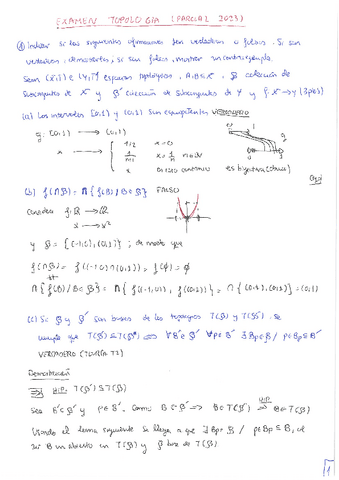 EXAMEN TOPOLOGÍA (PARCIAL 2023)
① Indicar si las siguientes afirmaciones son verdaderas o falsas. Si son
verdaderas, demostrarlas, si son falsas, mostrar un contraejemplo.
Sean (X,τ) e (Y,τ') espacios topológicos, A,B⊆X, 𝓑 colección de
subconjuntos de X y 𝓑' colección de subconjuntos de Y y f: X→Y (3ptos)
(a) Los intervalos [0,1) y (0,1) son equipotentes VERDADERO
g: [0,1) → (0,1)
x → { 1/2 x=0
x = 1/n n∈ℕ
x en caso contrario es biyectiva (obvio)
(b) f(∩𝓑) = ∩{f(B)/B∈𝓑} FALSO
Considera f: ℝ → ℝ
x → x²
y 𝓑 = {(-1,0),(0,1)}; de modo que
f(∩𝓑) = f((-1,0)∩(0,1)) = f(∅) = ∅
∩{f(B)/B∈𝓑} = ∩{f((-1,0)), f((0,1))} = ∩{(0,1),(0,1)} = (0,1)
(c) Si 𝓑 y 𝓑' son bases de las topologías T(𝓑) y T(𝓑'). Se
cumple que T(𝓑')⊆T(𝓑) ⟺ ∀B'∈𝓑' ∀p∈B' ∃Bp∈𝓑 / p∈Bp⊆B'
VERDADERO
Demostración
⇒) H.P. T(𝓑')⊆T(𝓑)
Sea B'∈𝓑' y p∈B'. Como
Usando el lema siguiente se llega a que ∃Bp∈𝓑 / p∈Bp⊆B, al
ser B un abierto en T(𝓑) y 𝓑 base de T(𝓑)
1